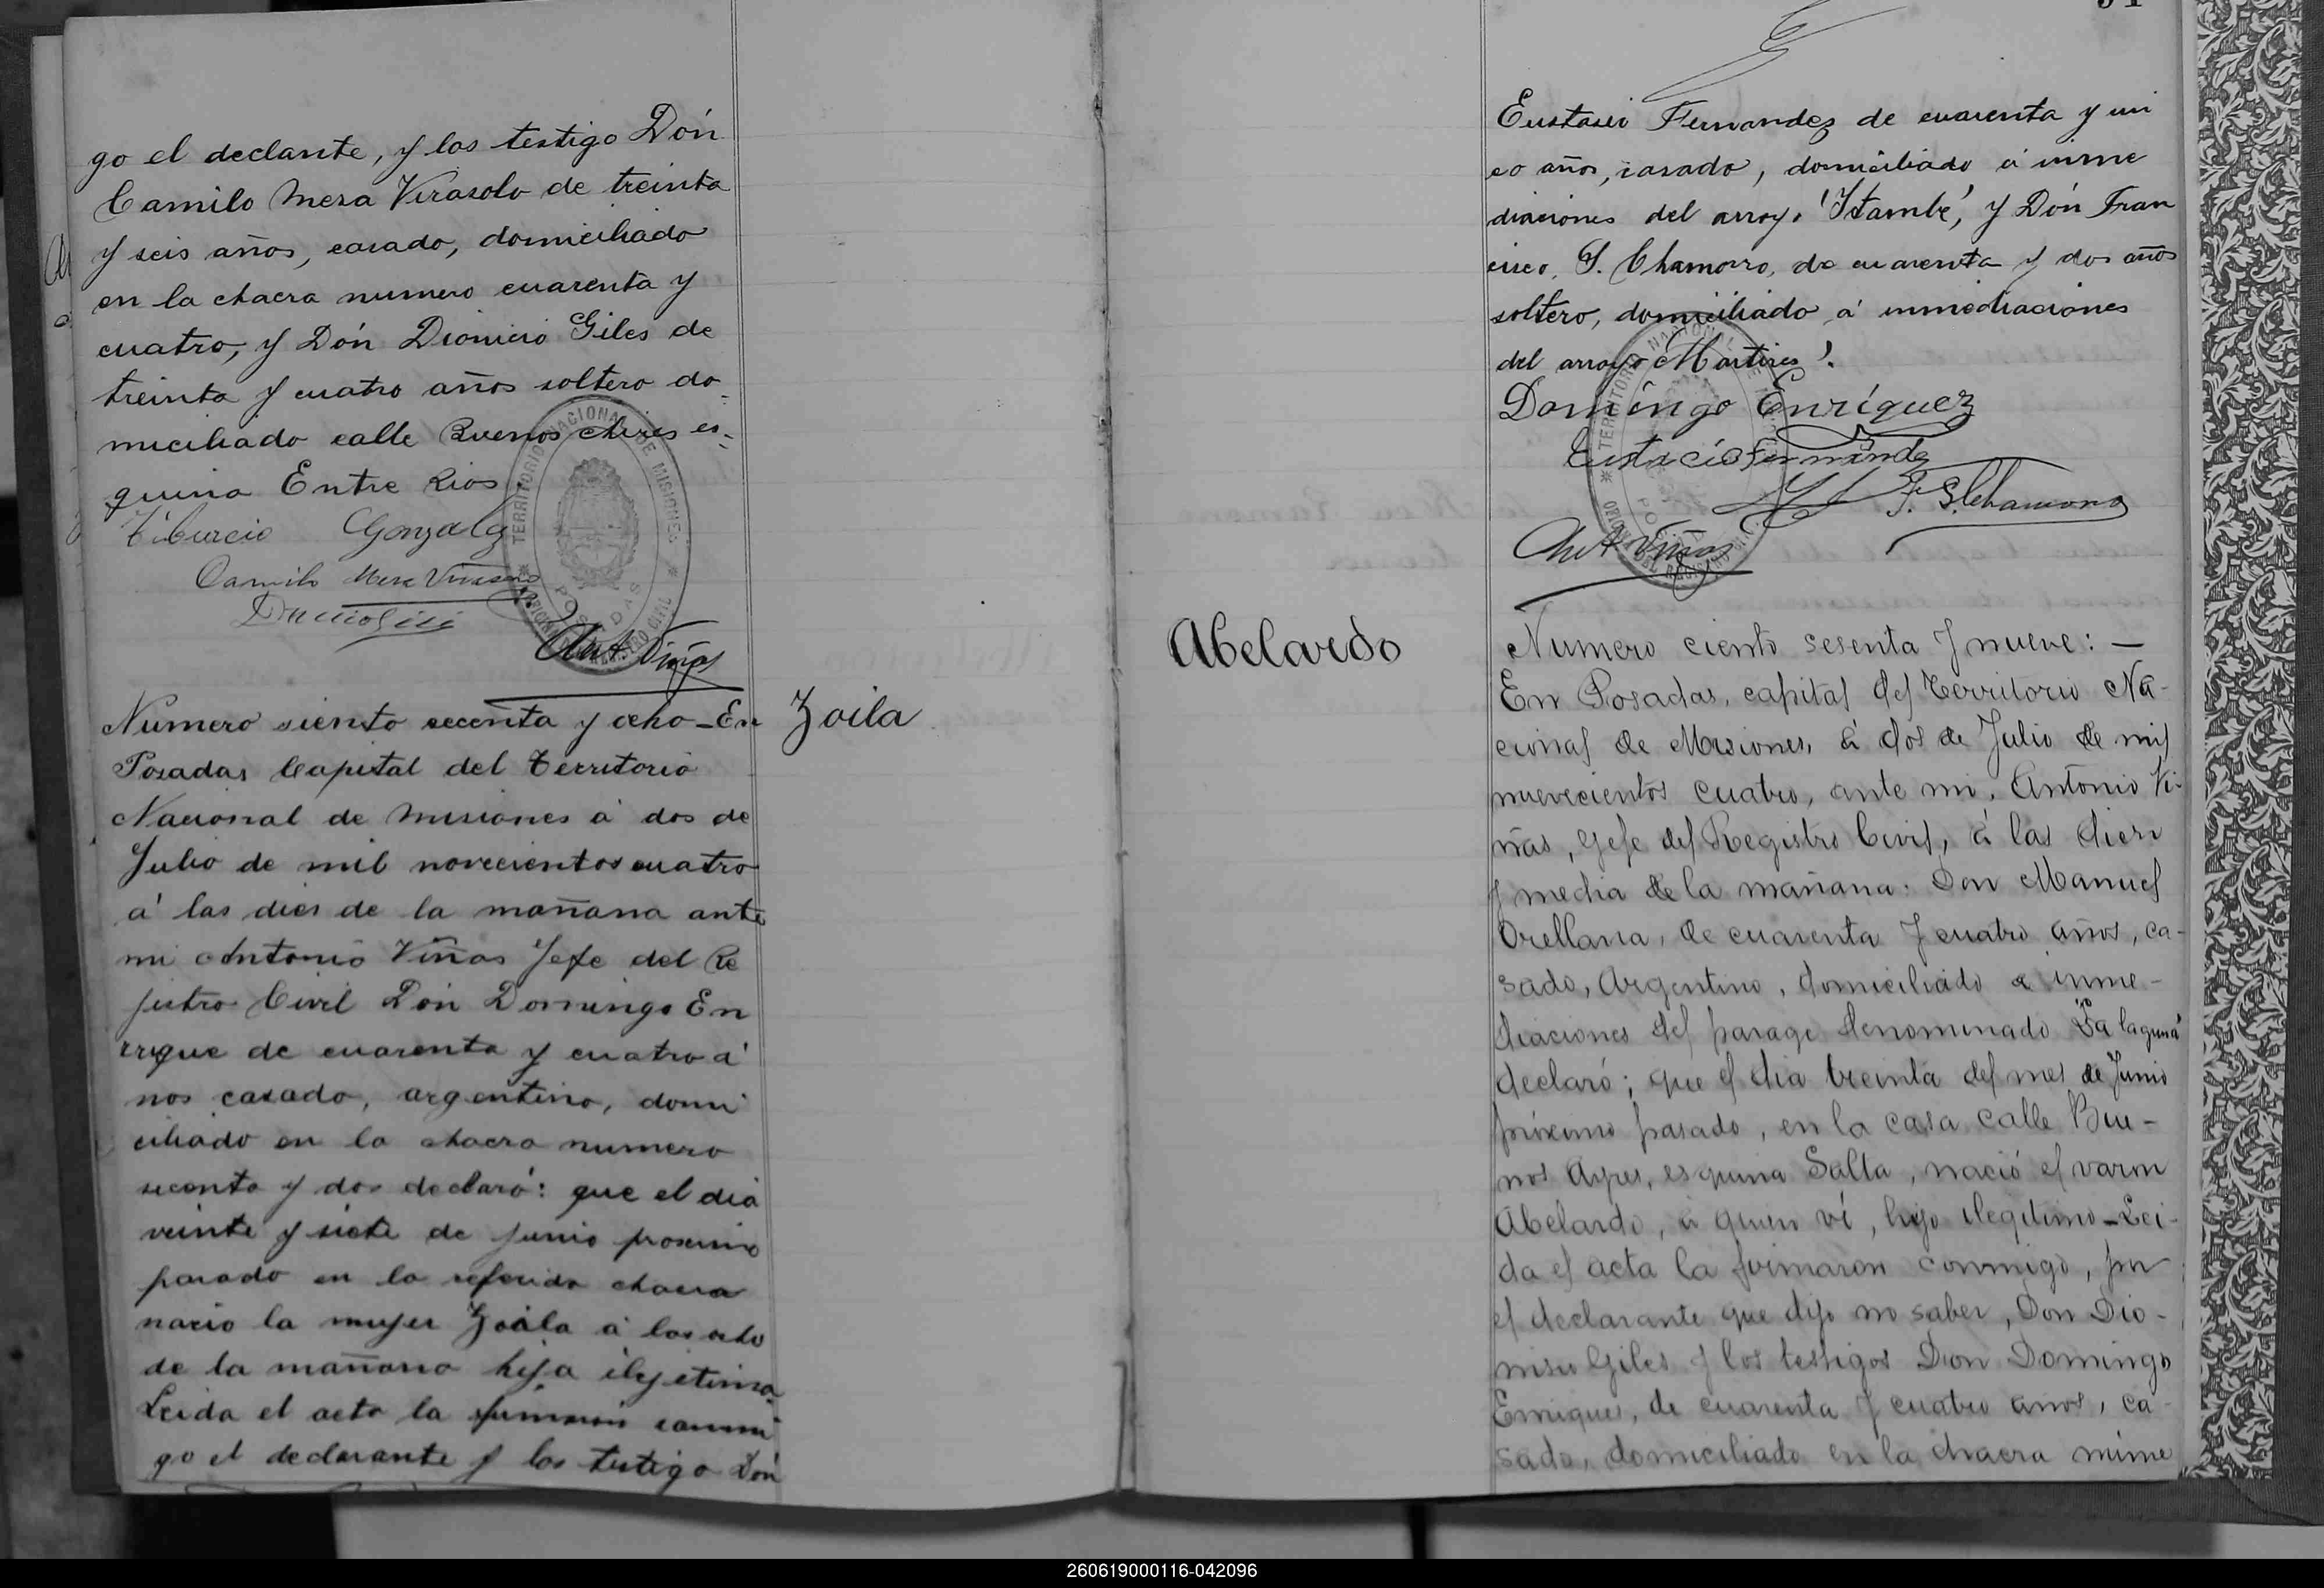 go el declante, y los testigo Dón
Camilo Mera Virasolo de treinta
y seis años, casado, domiciliado
en la chacra numero cuarenta y
cuatro, y Dón Dionicio Giles de
treinta y cuatro años soltero do
miciliado calle Buenos Aires es-
quina Entre Rios.
Tiburcio Gonzalez
Camilo Mera Virasoro
TERRITORIO NACIONAL DE MISIONES
OFICINA DEL REGISTRO CIVIL
POSADAS
Ant Viñas
Numero siento secenta y ocho - En
Zoila
Posadas Capital del Territorio
Nacional de Misiones á dos de
Julio de mil novecientos cuatro
á las dies de la mañana ante
mi Antonio Viñas Jefe del Re
jistro Civil Dón Domingo En
rrique de cuarenta y cuatro á
nos casado, argentino, domi
ciliado en la chacra numero
secenta y dos declaró: que el dia
veinte y siete de junio proximo
pasado en la referida chacra
nacio la mujer Zoila á las ocho
de la mañana hija ilejitima
Leida el acta la firmaron conmi
go el declarante y los testigo Dón
Eustasio Fernandez de cuarenta y cin
co años, casado, domiciliado á inme
diaciones del arroyo 'Itambé', y Dón Fran
cisco S. Chamorro, de cuarenta y dos años
soltero, domiciliado á inmediaciones
del arroyo Martires'.
Domingo Enríquez
Eustacio Fernandez
F. S. Chamorro
Ant Viñas
TERRITORIO NACIONAL DE MISIONES
OFICINA DEL REGISTRO CIVIL
POSADAS
Abelardo
Numero ciento sesenta y nueve: —
En Posadas, capital del Territorio Na-
cional de Misiones, á dos de Julio de mil
nuevecientos cuatro, ante mi, Antonio Vi-
ñas, Gefe del Registro Civil, á las diez
y media de la mañana: Don Manuel
Orellana, de cuarenta y cuatro años, ca-
sado, Argentino, domiciliado a inme-
diaciones del parage denominado La laguna
declaró; que el dia treinta del mes de Junio
próximo pasado, en la casa calle Bue-
nos Ayres, esquina Salta, nació el varon
Abelardo, á quien ví, hijo ilegitimo - Lei-
da el acta la firmaron conmigo, por
el declarante que dijo no saber, Don Dio-
nisio Giles y los testigos Don Domingo
Enriquez, de cuarenta y cuatro años, ca-
sado, domiciliado en la chacra núme
260619000116-042096